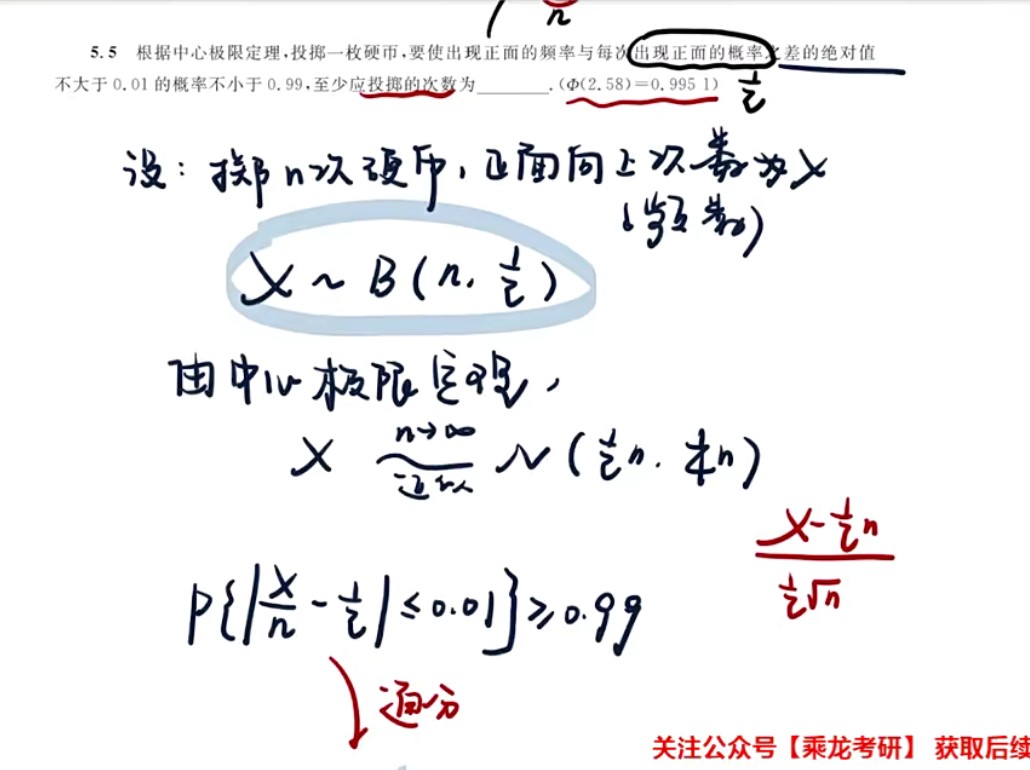 n
5.5 根据中心极限定理,投掷一枚硬币,要使出现正面的频率与每次出现正面的概率之差的绝对值
不大于0.01的概率不小于0.99,至少应投掷的次数为________.(Φ(2.58)=0.995 1)
1/2
设：掷n次硬币，正面向上次数为X
(频数)
X ~ B(n, 1/2)
由中心极限定理，
X n→∞ ~ 近似 N(1/2 n, 1/4 n)
X-1/2 n
1/2 √n
P{|X/n - 1/2| ≤ 0.01} ≥ 0.99
通分
关注公众号【乘龙考研】 获取后续